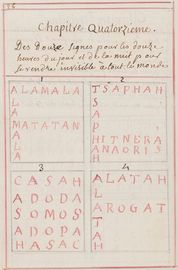 Chapitre Quatorzieme.
Des Douze signes pour les douze
heures du jour et de la nuit pour
se rendre invisible à tout le monde.
1
ALAMALA
L
A
MATATAN
A
L
A
2
TSAPHAH
S
A
P
HITNERA
ANAORIS
H
3
CASAH
ADODA
SOMOS
ADOPA
HASAC
4
ALATAH
L
AROGAT
T
A
H